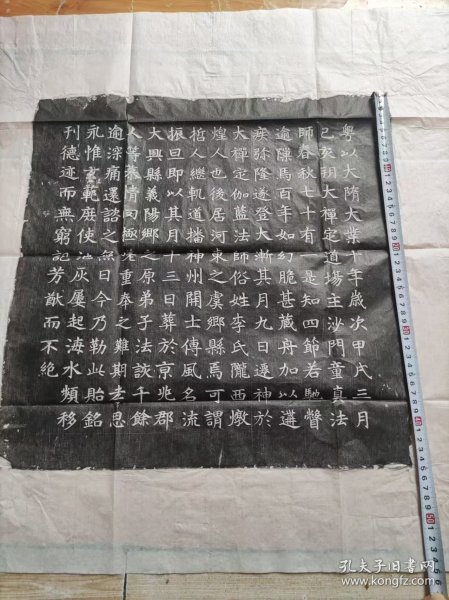 粤以大隋大業十年歲次甲戌三月
己亥朔大禪定道場主沙門童真法
師春秋七十有一是知四節若馳瞥
逾隙馬百年如幻脆甚藏舟加以遘
疾弥隆遂登大漸其月九日遷神於
大禪定伽藍法師俗姓李氏隴西燉
煌人也後居河東之虞鄉縣焉可謂
哲人繼軌道播神州開士傳風名流
振旦即以其月十三日葬於京兆郡
大興縣義陽鄉之原弟子法該千餘
人等情罔極重奉之難期去恩
逾深痛還諮之無日今乃勒此貽銘
永惟玄範庶使灰屢起海水頻移
刊德迹而無窮記芳猷而不絶
孔夫子旧书网
www.kongfz.com